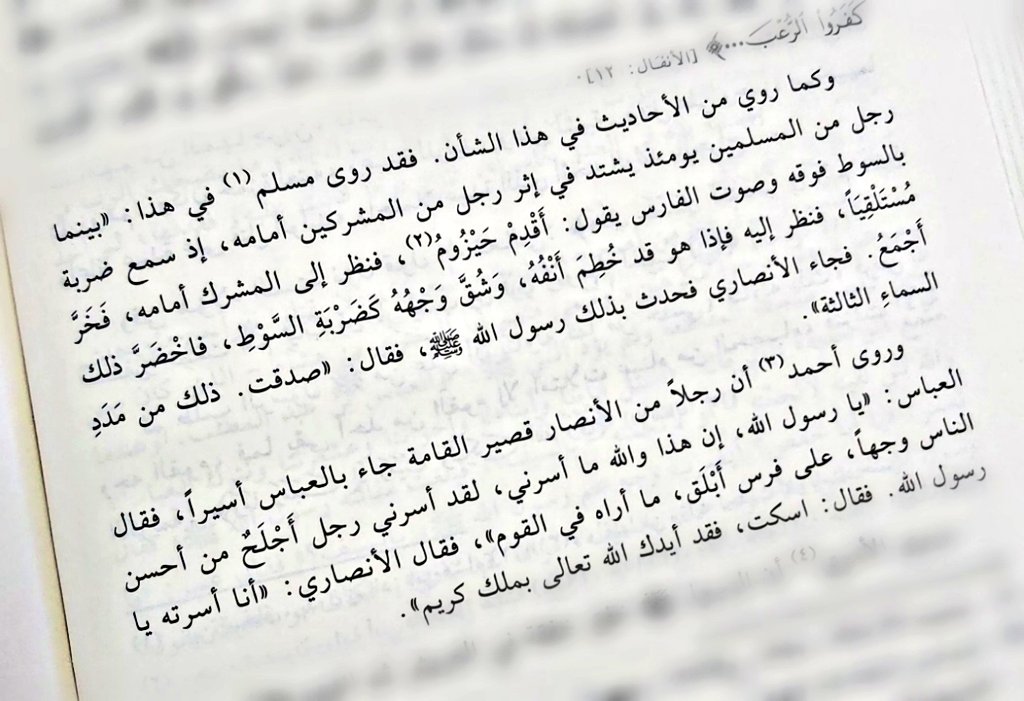 كَفَرُواْ ٱلرُّعْبَ...﴾ [الأنفال: ١٢].
وكما روي من الأحاديث في هذا الشأن. فقد روى مسلم(١) في هذا: «بينما
رجل من المسلمين يومئذ يشتد في إثر رجل من المشركين أمامه، إذ سمع ضربة
بالسوط فوقه وصوت الفارس يقول: أَقْدِمْ حَيْزُومُ(٢)، فنظر إلى المشرك أمامه، فَخَرَّ
مُسْتَلْقِيَاً، فنظر إليه فإذا هو قد خُطِمَ أَنْفُهُ، وَشُقَّ وَجْهُهُ كَضَرْبَةِ السَّوْطِ، فاخْضَرَّ ذلك
أَجْمَعُ. فجاء الأنصاري فحدث بذلك رسول الله ﷺ، فقال: «صدقت. ذلك من مَدَدِ
السماءِ الثالثة».
وروى أحمد(٣) أن رجلاً من الأنصار قصير القامة جاء بالعباس أسيراً، فقال
العباس: «يا رسول الله، إن هذا والله ما أسرني، لقد أسرني رجل أَجْلَحٌ من أحسن
الناس وجهاً، على فرس أَبْلَق، ما أراه في القوم»، فقال الأنصاري: «أنا أسرته يا
رسول الله. فقال: اسكت، فقد أيدك الله تعالى بملك كريم».